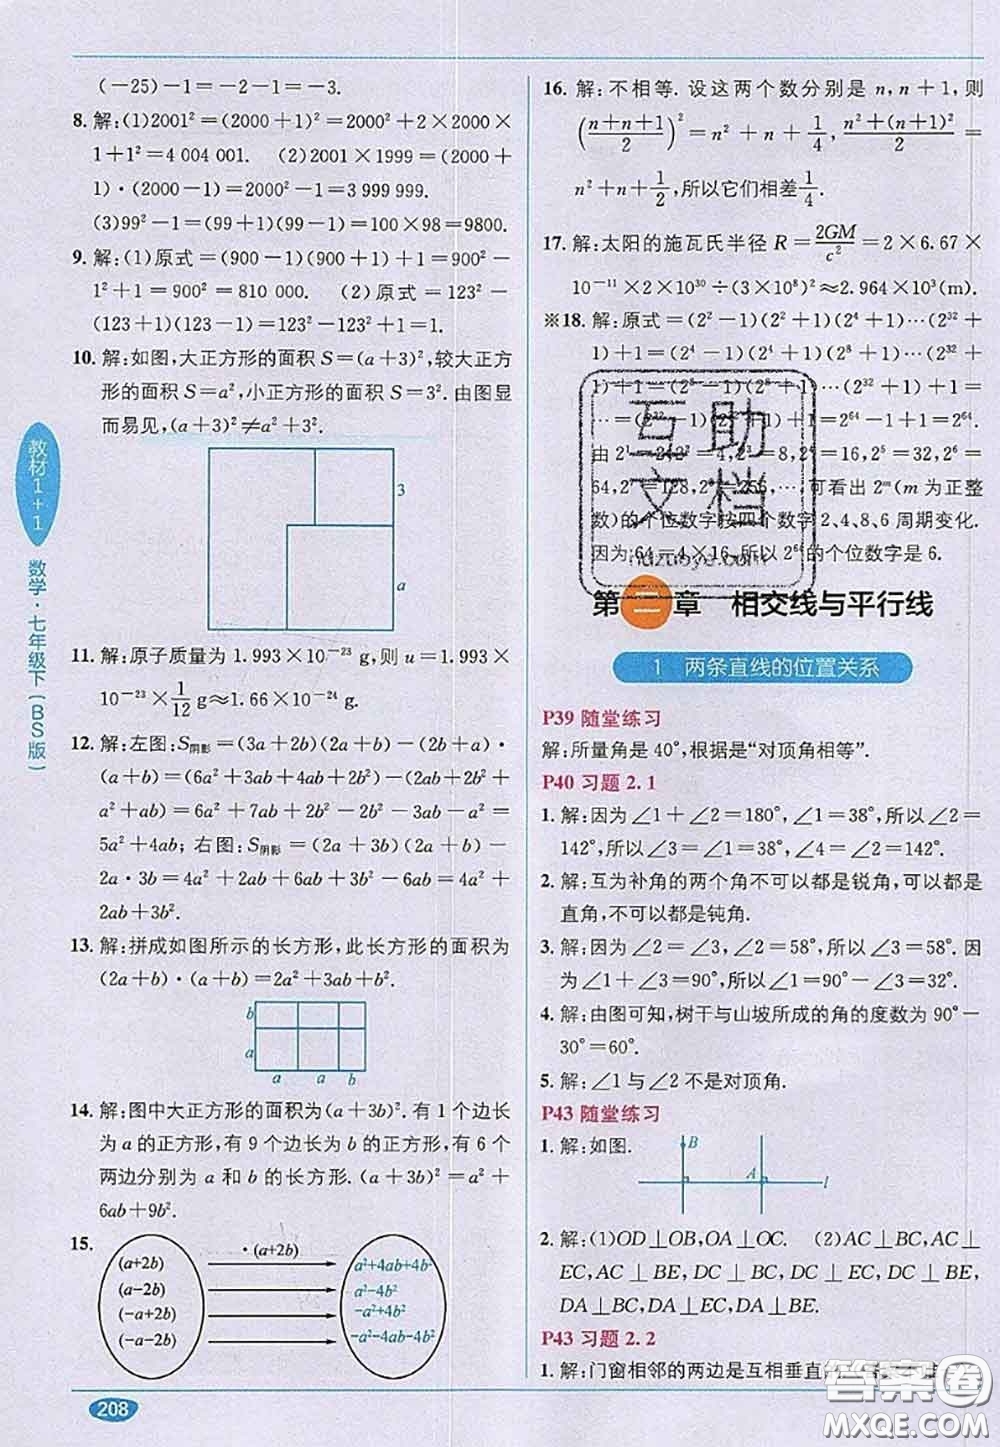 (−25)−1=−2−1=−3.
8. 解:(1)2001²=(2000+1)²=2000²+2×2000×
1+1²=4 004 001. (2)2001×1999=(2000+
1)·(2000−1)=2000²−1=3 999 999.
(3)99²−1=(99+1)(99−1)=100×98=9800.
9. 解:(1)原式=(900−1)(900+1)+1=900²−
1²+1=900²=810 000. (2)原式=123²−
(123+1)(123−1)=123²−123²+1=1.
10. 解:如图,大正方形的面积S=(a+3)²,较大正方
形的面积S=a²,小正方形的面积S=3².由图显
而易见,(a+3)²≠a²+3².
3
a
11. 解:原子质量为1.993×10⁻²³ g,则u=1.993×
10⁻²³×1/12 g≈1.66×10⁻²⁴ g.
12. 解:左图:S阴影=(3a+2b)(2a+b)−(2b+a)·
(a+b)=(6a²+3ab+4ab+2b²)−(2ab+2b²+
a²+ab)=6a²+7ab+2b²−2b²−3ab−a²=
5a²+4ab;右图:S阴影=(2a+3b)(2a+b)−
2a·3b=4a²+2ab+6ab+3b²−6ab=4a²+
2ab+3b².
13. 解:拼成如图所示的长方形,此长方形的面积为
(2a+b)·(a+b)=2a²+3ab+b².
b
a
a a b
14. 解:图中大正方形的面积为(a+3b)².有1个边长
为a的正方形,有9个边长为b的正方形,有6个
两边分别为a和b的长方形.(a+3b)²=a²+
6ab+9b².
15.
·(a+2b)
(a+2b) a²+4ab+4b²
(a−2b) a²−4b²
(−a+2b) −a²+4b²
(−a−2b) −a²−4ab−4b²
208
教材1+1
数学·七年级下(BS版)
16. 解:不相等.设这两个数分别是n,n+1,则
((n+n+1)/2)²=n²+n+1/4,(n²+(n+1)²)/2=
n²+n+1/2,所以它们相差1/4.
17. 解:太阳的施瓦氏半径R=2GM/c²=2×6.67×
10⁻¹¹×2×10³⁰÷(3×10⁸)²≈2.964×10³(m).
※18. 解:原式=(2²−1)(2²+1)(2⁴+1)…(2³²+
1)+1=(2⁴−1)(2⁴+1)(2⁸+1)…(2³²+1)+1=
(2⁸−1)(2⁸+1)…(2³²+1)+1=
…=(2³²−1)(2³²+1)+1=2⁶⁴−1+1=2⁶⁴.
由2¹=2,2²=4,2³=8,2⁴=16,2⁵=32,2⁶=
64,2⁷=128,2⁸=256,…,可看出2ᵐ(m为正整
数)的个位数字按四个数字2、4、8、6周期变化.
因为64=4×16,所以2⁶⁴的个位数字是6.
第二章 相交线与平行线
1 两条直线的位置关系
P39 随堂练习
解:所量角是40°,根据是“对顶角相等”.
P40 习题2.1
1. 解:因为∠1+∠2=180°,∠1=38°,所以∠2=
142°,所以∠3=∠1=38°,∠4=∠2=142°.
2. 解:互为补角的两个角不可以都是锐角,可以都是
直角,不可以都是钝角.
3. 解:因为∠2=∠3,∠2=58°,所以∠3=58°.因
为∠1+∠3=90°,所以∠1=90°−∠3=32°.
4. 解:由图可知,树干与山坡所成的角的度数为90°−
30°=60°.
5. 解:∠1与∠2不是对顶角.
P43 随堂练习
1. 解:如图.
B
A
l
2. 解:(1)OD⊥OB,OA⊥OC. (2)AC⊥BC,AC⊥
EC,AC⊥BE,DC⊥BC,DC⊥EC,DC⊥BE,
DA⊥BC,DA⊥EC,DA⊥BE.
P43 习题2.2
1. 解:门窗相邻的两边是互相垂直
互助
文档
huzuoye.com
答案卷
MXQE.COM